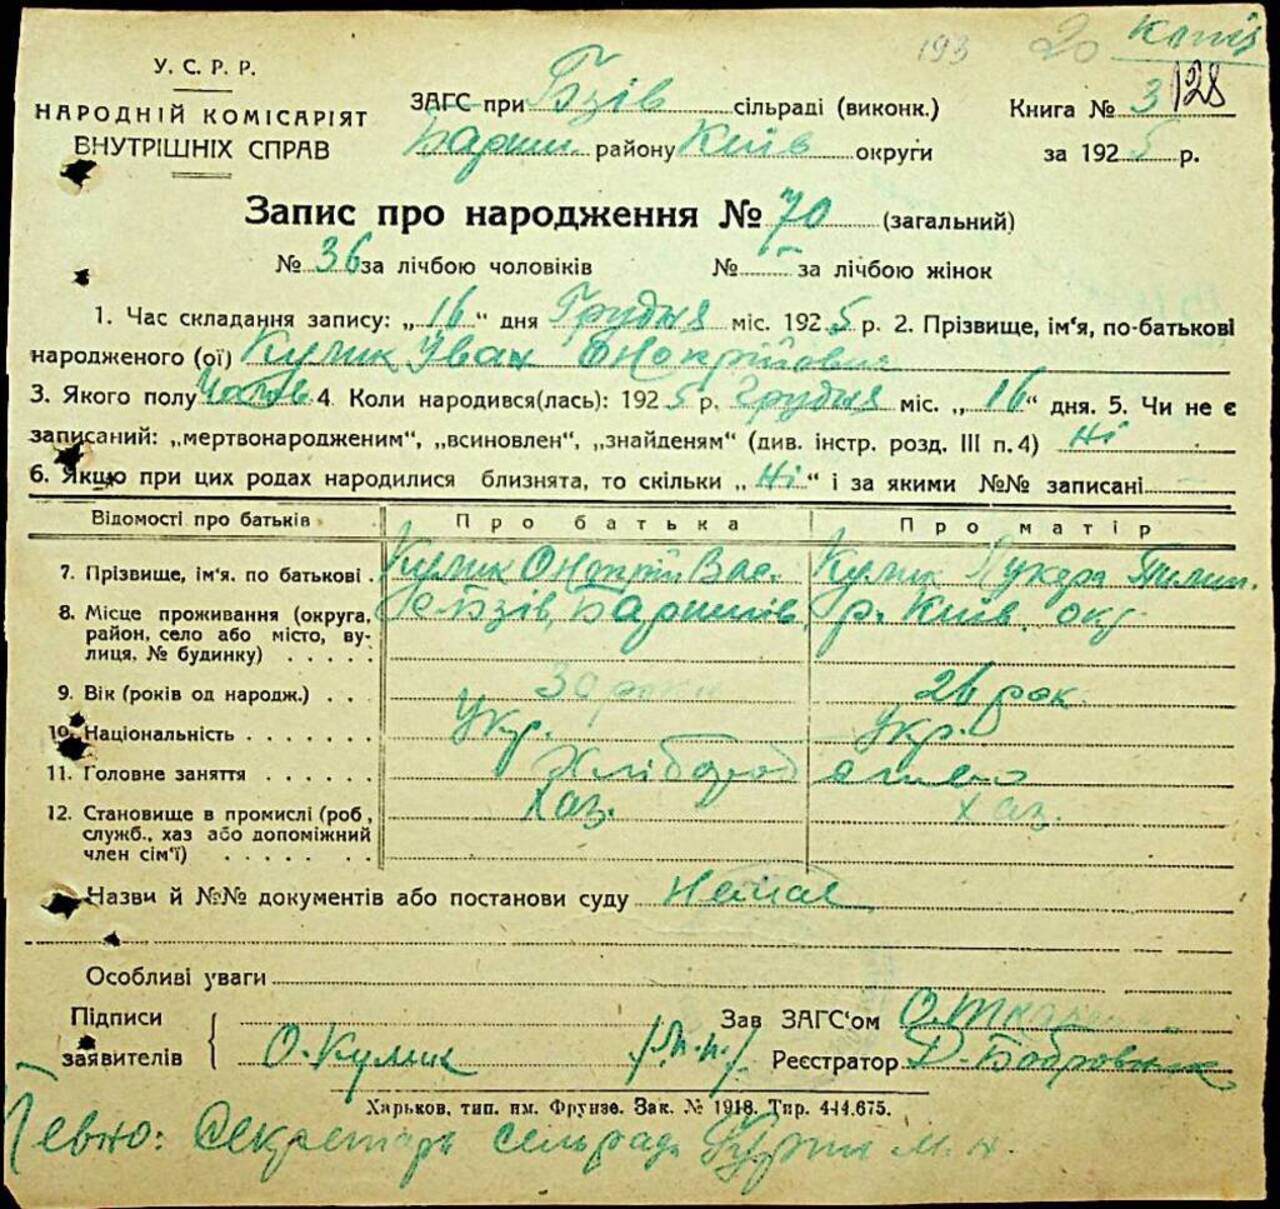 193 20 Копія
У. С. Р. Р.
НАРОДНІЙ КОМІСАРІЯТ
ВНУТРІШНІХ СПРАВ
ЗАГС при Бзів сільраді (виконк.) Книга № 3 128
Бариш. району Київ округи за 1925 р.
Запис про народження № 70 (загальний)
№ 36 за лічбою чоловіків № — за лічбою жінок
1. Час складання запису: „16" дня Грудня міс. 1925 р. 2. Прізвище, ім'я, по-батькові
народженого (ої) Кулик Іван Онокрійович
3. Якого полу Чолов 4. Коли народився(лась): 1925 р. Грудня міс. „16" дня. 5. Чи не є
записаний: „мертвонародженим", „всиновлен", „знайденям" (див. інстр. розд. III п. 4) Ні
6. Якщо при цих родах народилися близнята, то скільки „Ні" і за якими №№ записані
Відомості про батьків Про батька Про матір
7. Прізвище, ім'я. по батькові . Кулик Онокрій Вас. Кулик Лукера Пилип.
8. Місце проживання (округа, с. Бзів, Баришів, р. Київ. окр
район, село або місто, ву-
лиця, № будинку) . . . . .
9. Вік (років од народж.) . . . 30 роки 26 рок.
10. Національність . . . . . . . Укр. Укр.
11. Головне заняття . . . . . . Хлібороб
12. Становище в промислі (роб, Хаз. Хаз.
служб., хаз або допоміжний
член сім'ї) . . . . . . .
Назви й №№ документів або постанови суду Немає
Особливі уваги
Підписи Зав ЗАГС'ом О. Ткач
заявителів О. Кулик /Пп./ Реєстратор Д. Бобровник
Харьков, тип. им. Фрунзе. Зак. № 1918. Тир. 444.675.
Певно: Секретарь сельради М. П.